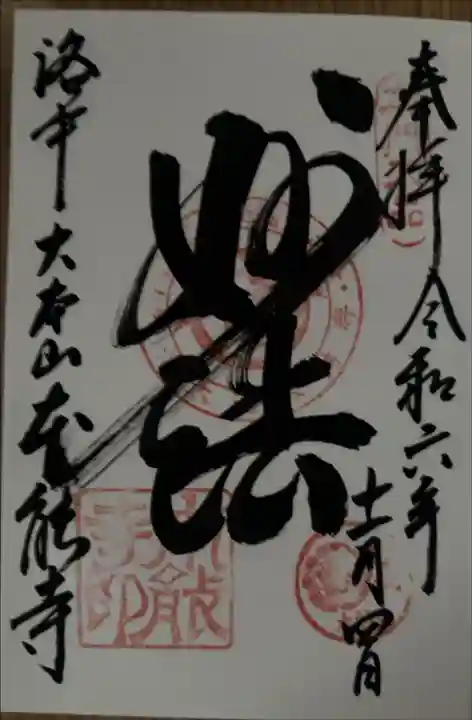 奉拝 令和六年
十一月四日
妙法
洛中 大本山 本能寺